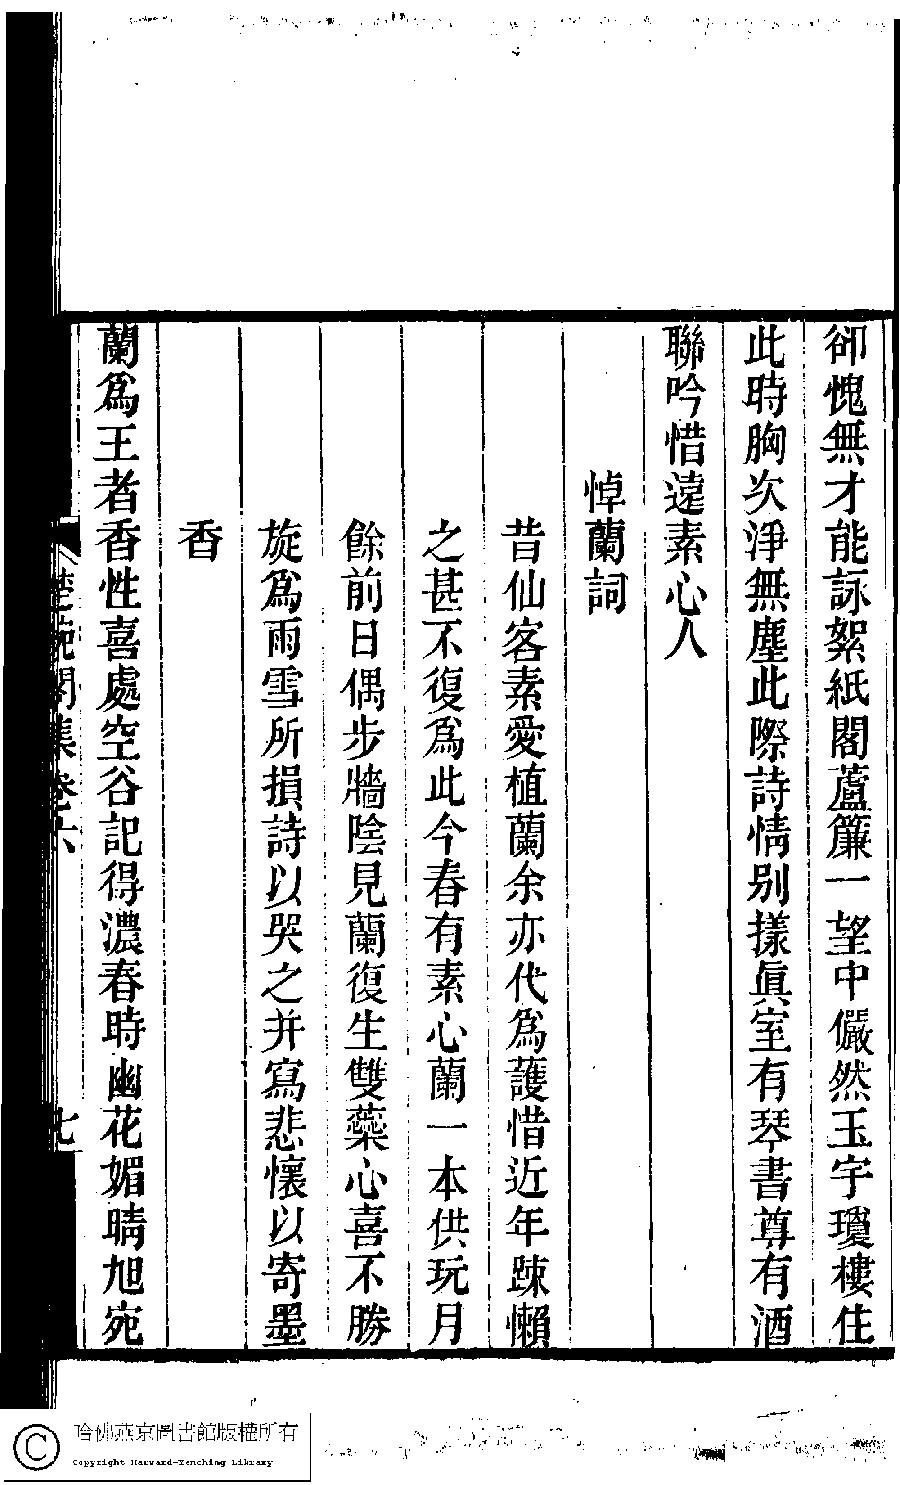 卻愧無才能詠絮紙閣蘆簾一望中儼然玉宇瓊樓住
此時胸次淨無塵此際詩情別樣眞室有琴書尊有酒
聯吟惜遠素心人
悼蘭詞
昔仙客素愛植蘭余亦代爲護惜近年踈懶
之甚不復爲此今春有素心蘭一本供玩月
餘前日偶步牆陰見蘭復生雙蘂心喜不勝
旋爲雨雪所損詩以哭之并寫悲懷以寄墨
香
蘭爲王者香性喜處空谷記得濃春時幽花媚晴旭宛
楚畹閣集卷六
七
哈佛燕京圖書館版權所有
Copyright Harvard-Yenching Library